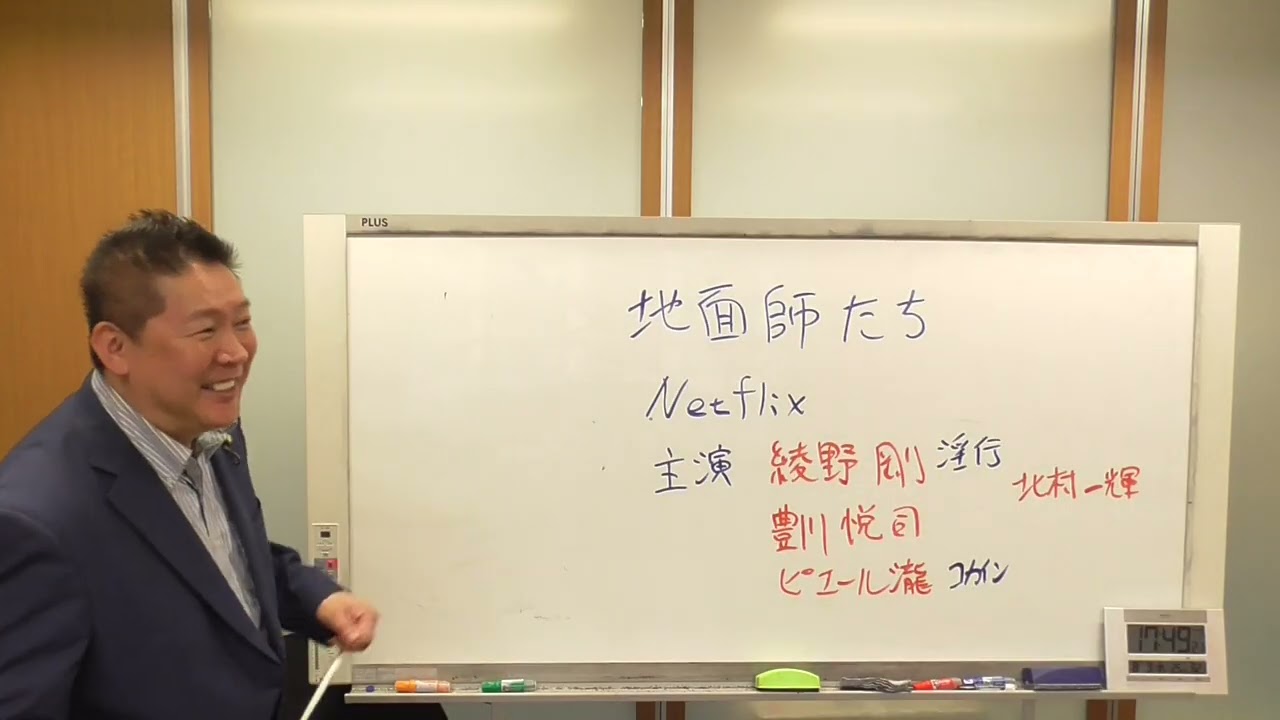 PLUS
地面師たち
Netflix
主演 綾野 剛 淫行
北村一輝
豊川悦司
ピエール瀧 コカイン
17:49